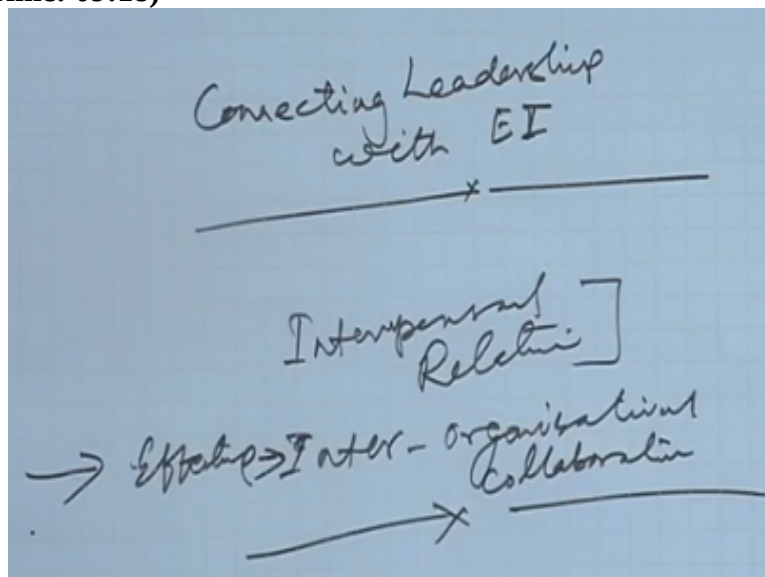 Connecting Leadership
with EI
Interpersonal
Relation
→ Effective → Inter-organisational
Collaboration